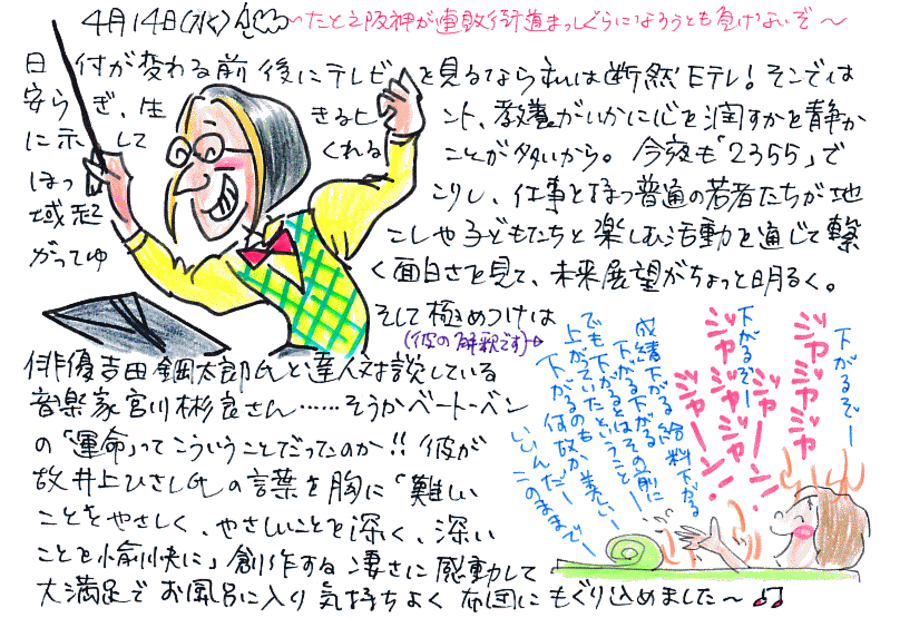 4月14日(水)
～たとえ阪神が連敗街道まっしぐらになろうとも負けないぞ～
日付が変わる前後にテレビを見るなら私は断然Eテレ！そこでは
安らぎ、生きるヒント、教養がいかに心を潤すかを静か
に示してくれることが多いから。今夜も「2355」で
ほっこりし、仕事を持つ普通の若者たちが地
域起こしや子どもたちと楽しむ活動を通じて繋
がってゆく面白さを見て、未来展望がちょっと明るく。
そして極めつけは
(彼の解釈です)→
俳優吉田鋼太郎氏と達人対談している
音楽家宮川彬良さん……そうかベートーベン
の「運命」ってこういうことだったのか!!彼が
故井上ひさし氏の言葉を胸に「難しい
ことをやさしく、やさしいことを深く、深い
ことを愉快に」創作する凄さに感動して
大満足でお風呂に入り気持ちよく布団にもぐり込めました～♫
下がるぞー
ジャジャジャジャーン！
下がるぞー
ジャジャジャジャーン！
成績下がる給料下がる
下がる下がる
下がるとはその前に
上がっていたということー
でも下がるのも美しいー
下がる何故かー
いいんだーこのままでー